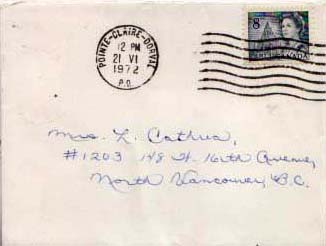 POINTE-CLAIRE-DORVAL
12 PM
21 VI
1972
P.Q.
8
Mrs. L. Cathrea,
#1203 148 W. 16th Avenue,
North Vancouver, B.C.